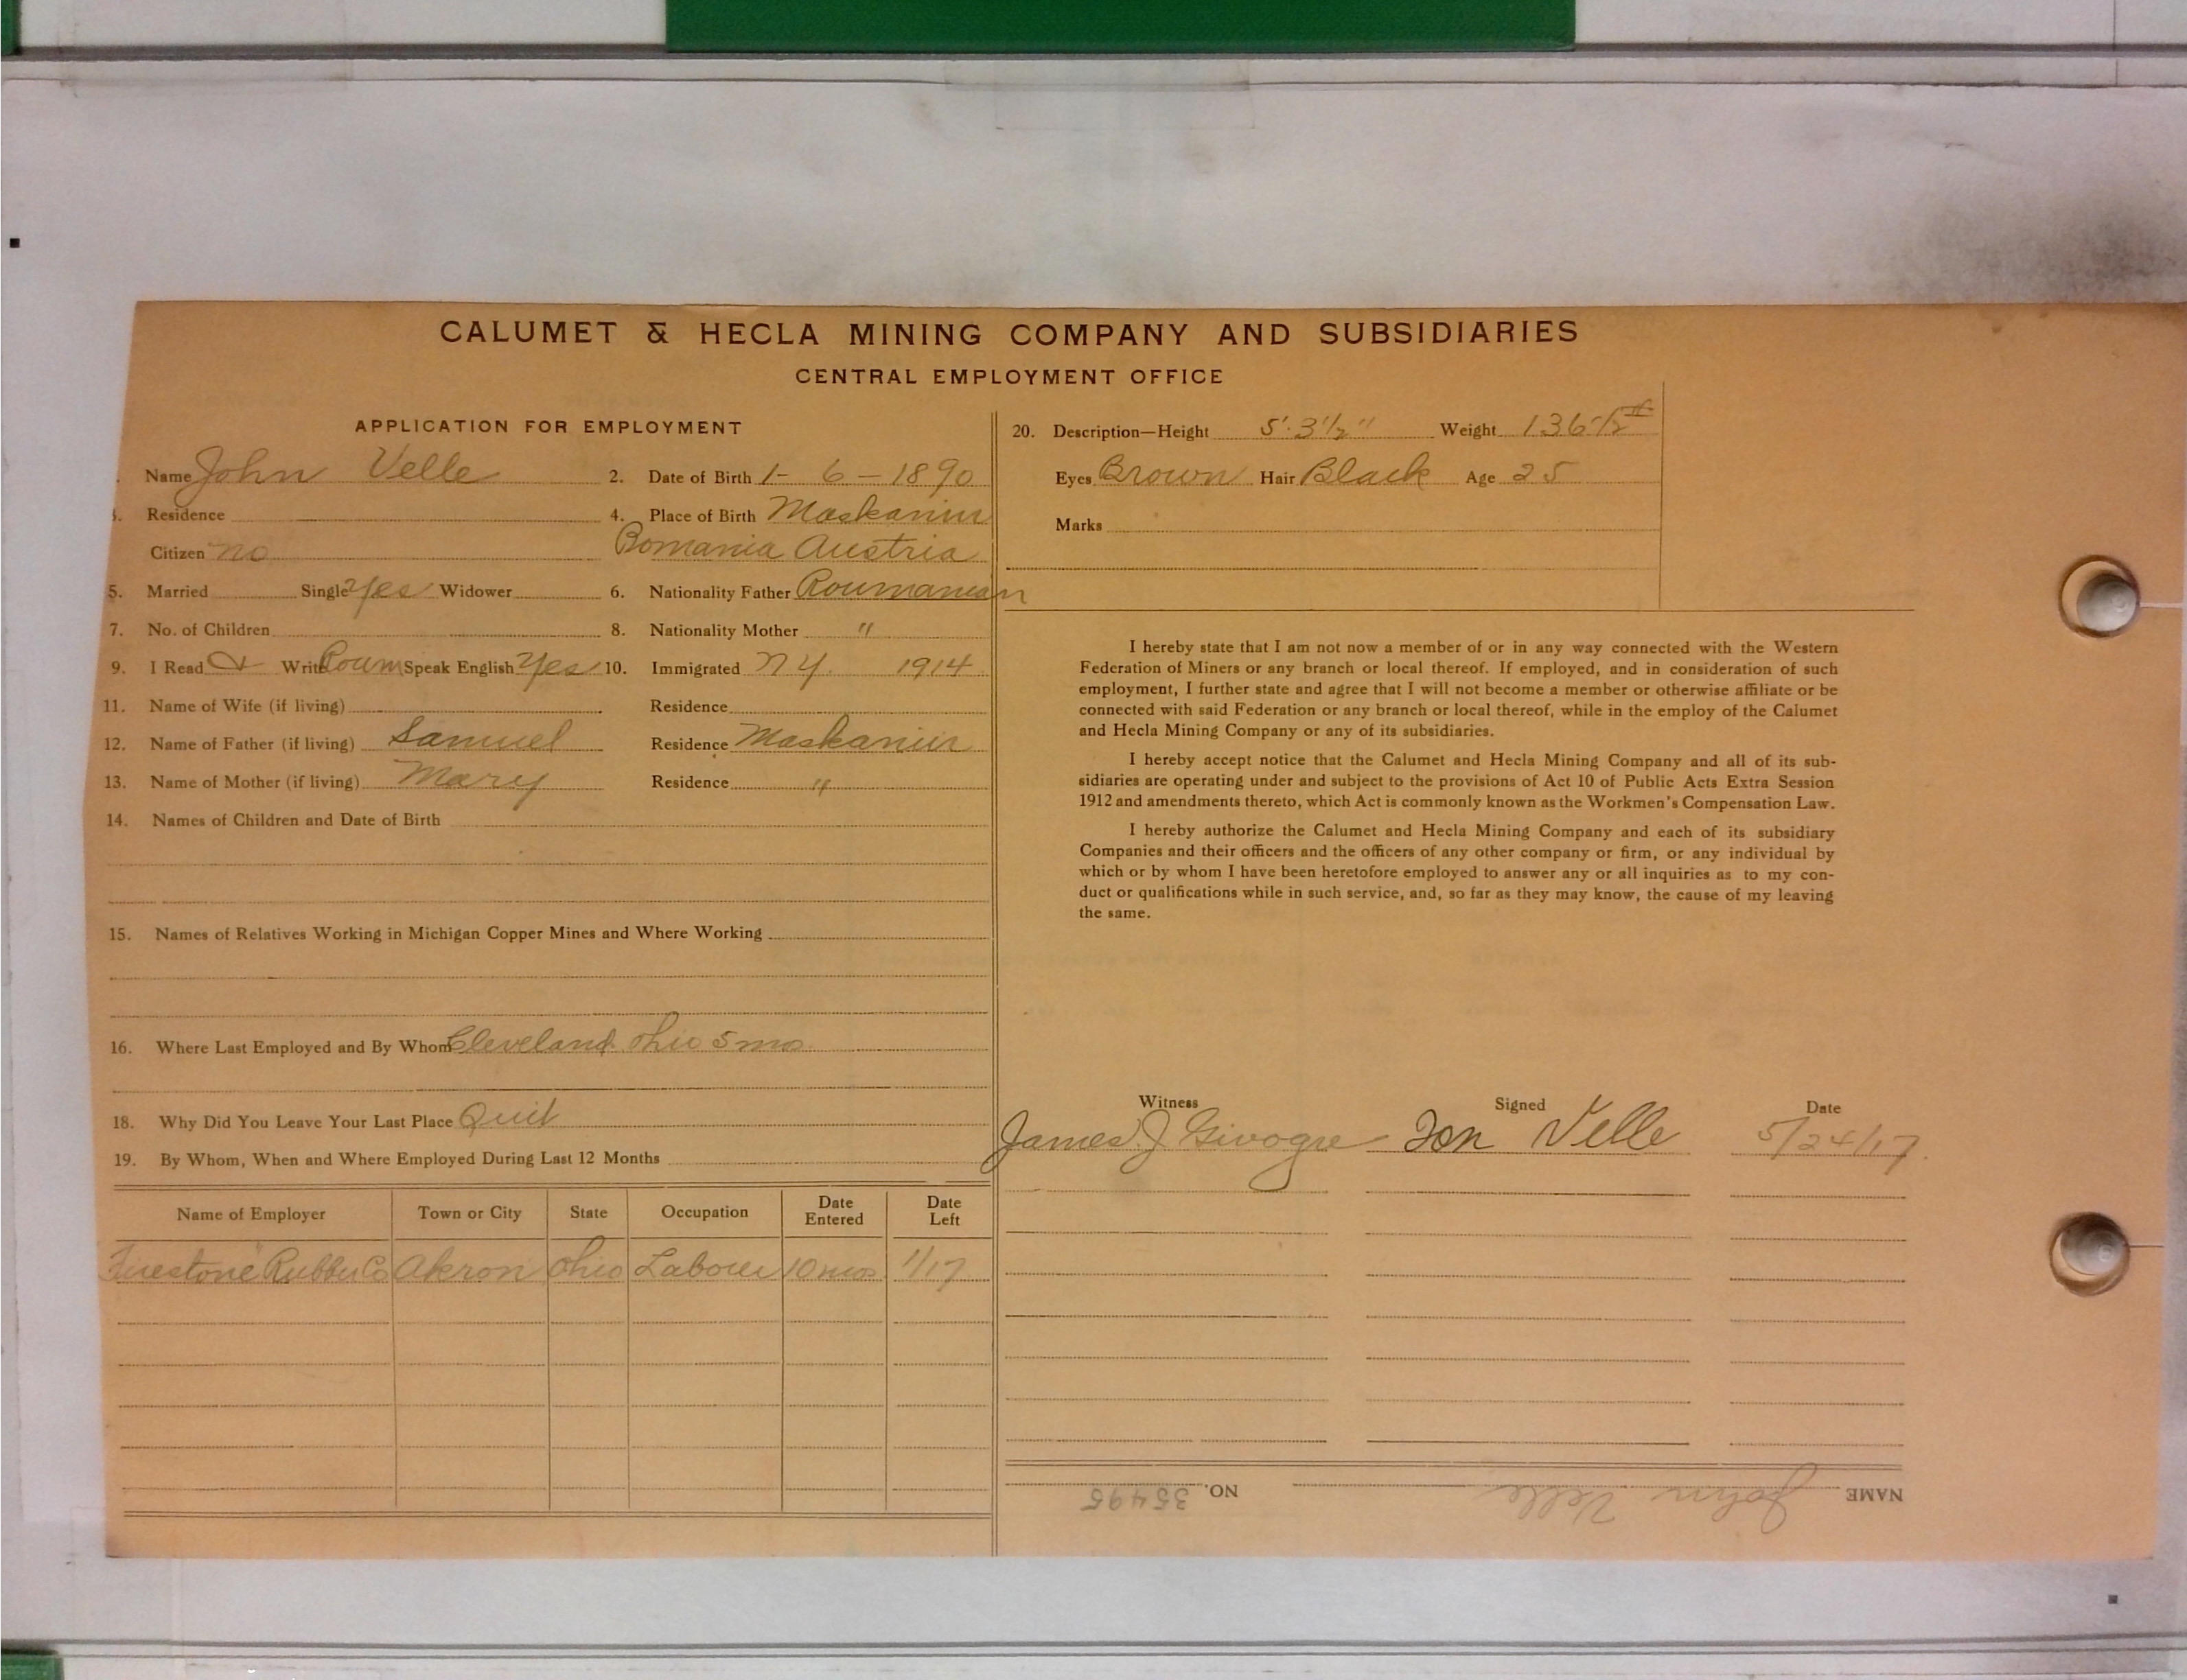 CALUMET & HECLA MINING COMPANY AND SUBSIDIARIES
CENTRAL EMPLOYMENT OFFICE
APPLICATION FOR EMPLOYMENT
Name John Velle 2. Date of Birth 1-6-1890
Residence 4. Place of Birth Maskaniur
Citizen no Romania Austria
5. Married Single Yes Widower 6. Nationality Father Roumanian
7. No. of Children 8. Nationality Mother "
9. I Read & Write Roum Speak English Yes 10. Immigrated N Y. 1914
11. Name of Wife (if living) Residence
12. Name of Father (if living) Samuel Residence Maskaniur
13. Name of Mother (if living) Mary Residence "
14. Names of Children and Date of Birth
15. Names of Relatives Working in Michigan Copper Mines and Where Working
16. Where Last Employed and By Whom Cleveland Ohio 5 mo
18. Why Did You Leave Your Last Place Quit
19. By Whom, When and Where Employed During Last 12 Months
Name of Employer Town or City State Occupation Date Entered Date Left
Firestone Rubber Co Akron Ohio Labour 10 mos 1/17
20. Description—Height 5' 3 1/2" Weight 136 1/2 #
Eyes Brown Hair Black Age 25
Marks
I hereby state that I am not now a member of or in any way connected with the Western
Federation of Miners or any branch or local thereof. If employed, and in consideration of such
employment, I further state and agree that I will not become a member or otherwise affiliate or be
connected with said Federation or any branch or local thereof, while in the employ of the Calumet
and Hecla Mining Company or any of its subsidiaries.
I hereby accept notice that the Calumet and Hecla Mining Company and all of its sub-
sidiaries are operating under and subject to the provisions of Act 10 of Public Acts Extra Session
1912 and amendments thereto, which Act is commonly known as the Workmen's Compensation Law.
I hereby authorize the Calumet and Hecla Mining Company and each of its subsidiary
Companies and their officers and the officers of any other company or firm, or any individual by
which or by whom I have been heretofore employed to answer any or all inquiries as to my con-
duct or qualifications while in such service, and, so far as they may know, the cause of my leaving
the same.
Witness Signed Date
James J Givogre Ion Velle 5/24/17
NAME John Velle NO. 35495